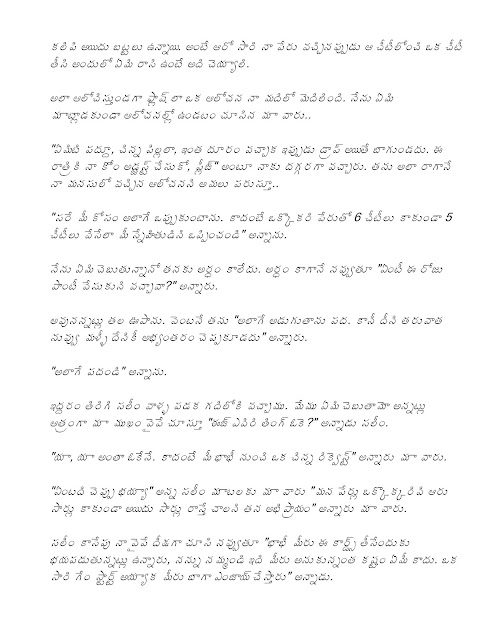 కలిపి అయిదు బట్టలు ఉన్నాయి. అంటే ఆరో సారి నా పేరు వచ్చినప్పుడు ఆ చీటీలోంచి ఒక చీటీ
తీసి అందులో ఏమి రాసి ఉంటే అది చెయ్యాలి.
అలా ఆలోచిస్తుండగా ఫ్లాష్ లా ఒక ఆలోచన నా మదిలో మెదిలింది. నేను ఏమి
మాట్లాడకుండా ఆలోచనల్లో ఉండటం చూసిన మా వారు..
"ఏమిటి పద్దూ, చిన్న పిల్లలా, ఇంత దూరం వచ్చాక ఇప్పుడు డ్రాప్ అయితే బాగుండదు. ఈ
రాత్రికి నా కోం అడ్జస్ట్ చేసుకో, ప్లీజ్" అంటూ నాకు దగ్గరగా వచ్చారు. తను అలా రాగానే
నా మనసులో వచ్చిన ఆలోచనని అమలు పరుస్తూ..
"సరే మీ కోసం అలాగే ఒప్పుకుంటాను. కాదంటే ఒక్కొకరి పేరుతో 6 చీటీలు కాకుండా 5
చీటీలు వేసేలా మీ స్నేహితుడిని ఒప్పించండి" అన్నాను.
నేను ఏమి చెబుతున్నానో తనకు అర్ధం కాలేదు. అర్ధం కాగానే నవ్వుతూ "ఏంటీ ఈ రోజు
పాంటీ వేసుకుని వచ్చావా?" అన్నారు.
అవునన్నట్లు తల ఊపాను. వెంటనే తను "అలాగే అడుగుతాను పద. కానీ దీని తరువాత
నువ్వు మళ్ళీ దేనికీ అభ్యంతరం చెప్పకూడదు" అన్నారు.
"అలాగే పదండి" అన్నాను.
ఇద్దరం తిరిగి సలీం వాళ్ళ పడక గదిలోకి వచ్చాము. మేము ఏమి చెబుతామో అన్నట్లు
ఆత్రంగా మా ముఖం వైపే చూస్తూ "ఈజ్ ఎవిరి తింగ్ ఓకె?" అన్నాడు సలీం.
"యా, యా అంతా ఓకేనే. కాదంటే మీ భాభీ నుంచి ఒక చిన్న రిక్వెస్ట్" అన్నారు మా వారు.
"ఏంటది చెప్పు భయ్యా" అన్న సలీం మాటలకు మా వారు "మన పేర్లు ఒక్కొక్కరివి ఆరు
సార్లు కాకుండా అయిదు సార్లు రాస్తే చాలని తన అభిప్రాయం" అన్నారు మా వారు.
సలీం కాసేపు నా వైపే దీక్షగా చూసి నవ్వుతూ "భాభీ మీరు ఈ కార్డ్స్ తీసేందుకు
భయపడుతున్నట్లు ఉన్నారు, నన్ను నమ్మండి ఇది మీరు అనుకున్నంత కష్టం ఏమీ కాదు. ఒక
సారి గేం స్టార్ట్ అయ్యాక మీరు బాగా ఎంజాయ్ చేస్తారు" అన్నాడు.